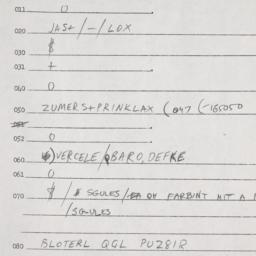 011 0
020 JAS+/-/LOX
030 $
031 +
040 0
050 ZUMERS+PRINKLAX (047 (-165050
052 0
060 VERCELE/ BARO, DEFKE
061 0
070 $/ SGULES/ OH FARBINT MIT A
/SGULES
080 BLOTERL QGL PUZ81R